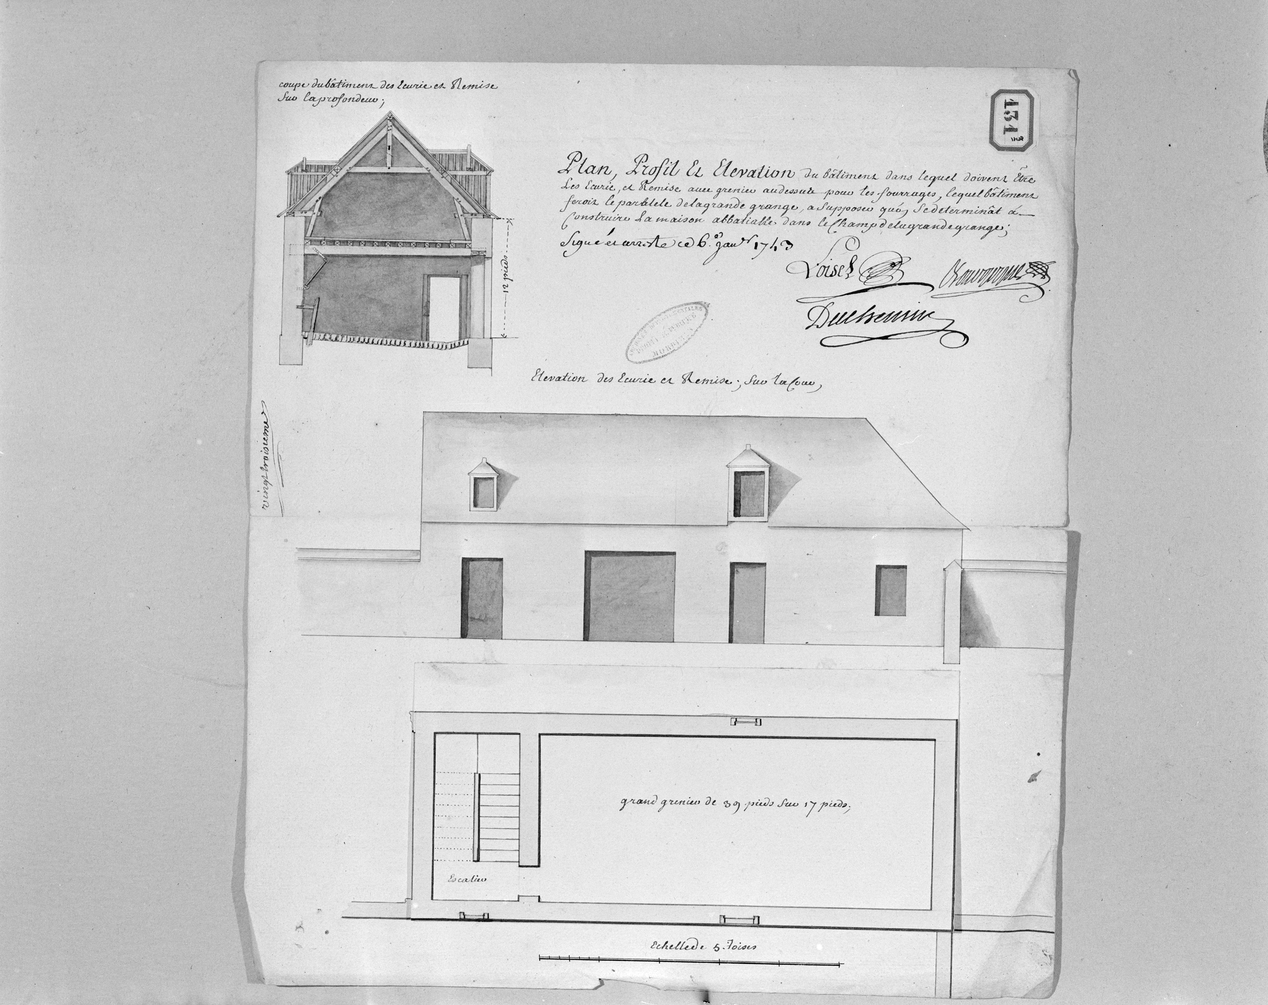 coupe du bâtiment des Ecurie et Remise
Sur la profondeur;
131
12 pieds
Plan, Profil Et Elevation du bâtiment dans lequel doivent Être
les Ecurie, et Remise avec grenier audessute pour les fourrages, lequel bâtiment
feroit le paralele de la grande grange, a Supposer quón Se determinât à
Construire la maison abbatialle dans le Champ de la grande grange;
Signé et arreste ce 6. Janvr 1743
Loisel
Duchemin
Elevation des Ecurie et Remise; Sur la Cour,
vingt troisieme
grand grenier de 39 pieds Sur 17 pieds;
Escalier
Echelle de 5. Toises